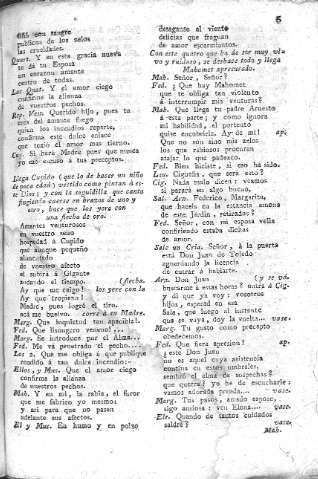 5
con sangre
publicas de los zelos
las crueldades.
Quart. Y en esta gracia nueva
se dá tu Esposa
un corazon amante
centro de todas.
Los Quat. Y el amor ciego
confirme la alianza
de vuestros pechos.
Rep. Ven Querido hijo, pues tu
eres del amante fuego
quien los incendios reparte,
confirma este dulce enlace
que texió el amor mas tierno.
Ing. Sí hará Madre pues que nunca
yo me escuso á tus preceptos.
Llega Cupido (que lo de hacer un niño
de poca edad) vestido como pintan á este
Dios; y con la seguidilla que canta
fingiendo quererse en brazos de uno y
otro, hace que les yere con
una flecha de oro.
Amantes venturosos
en vuestro seno
hospedad á Cupido
que aunque pequeño
alimentado
de vuestro afecto
el subirá á Gigante
andando el tiempo. (flecha.
Ay que me caigo! los yere con la
Ay que tropiezo!
Madre, pues logré el tiro,
acá me buelvo. corre á su Madre.
Marg. Que hospitalad tan apacible!
Fed. Que lisongero veneno!...
Marg. Se introduce por el Alma...
Fed. Me vá penetrado el pecho....
Los 2. Que me obliga á que publique
rendido á tan dulce incendio:-
Ellos, y Mus. Que el amor ciego
confirme la alianza
de nuestros pechos.
Mah. Y en mi, la rabia, el furor
que me fabrico yo mesmo;
y así para que no pasen
adelante sus afectos.
El y Mus. En humo y en polvo
desegante al viento
delicias que fraguan
de amor escarmientos.
Con este quatro que ha de ser muy vivo
y ruidoso, se deshace todo y llega
Mahomet apresurado.
Mah. Señor, Señor?
Fed. ¿ Que hay Mahomet
que te obliga tan violento
á interrumpir mis venturas?
Mah. Que llega tu padre Arnesto
á esta parte; y como ignora
mi habilidad, el portento
quise encubrirla. Ay de mi! ap.
Que no son sino mis zelos
los que rabiosos procuran
atajar lo que padezco.
Fed. Bien hiciste, si eso ha sido.
Leon. Cigueña, que será esto?
Cig. Nada malo dicen: veamos
si parará en algo bueno.
Sal. Arn. Federico, Margarita,
que haceis en la estancia ameno
de este Jardin, retirados?
Fed. Señor, con mi esposa vella
confiriendo estaba dichas
de amor.
Sale un Cria. Señor, á la puerta
está Don Juan de Toledo
aguardando la licencia
de entrar á hablarte.
Arn. Don Juan (y se va.
buscarme á estas horas? entra á Cig.
y di que ya voy: vosotros
hijos, esperad en esa
Sala, que luego al instante
que se vaya, doy la vuelta... vase.
Marg. Tu gusto como precepto
obedecemos.
Fed. Que fiera apension! ap.
¡ este Don Juan
no es aquel cuya asistencia
continua en estos umbrales,
sembró el alma de sospechas?
que querrá! yo he de escucharle:
vamos adorada prenda.... vase.
Marg. Tus pasos, amado esposo,
sigo ansiosa: ven Elena.... vase.
Ele. Quando de tantos cuidados
saldré? vase.
Mah.